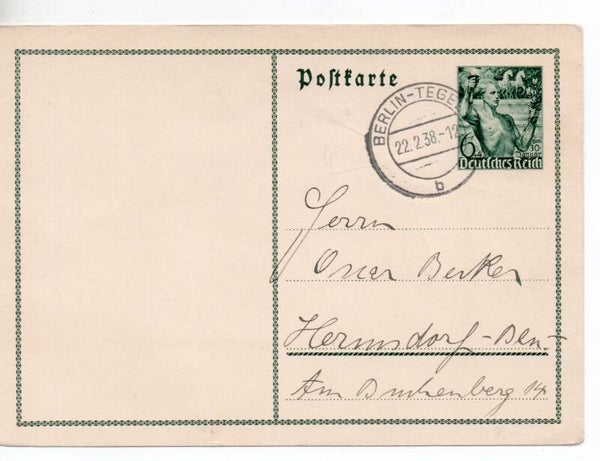 Postkarte
BERLIN-TEGEL
22.2.38.-12
b
6
30
Deutsches Reich
Herrn
Oscar Berker
Hermsdorf-Bln-
Am Buchenberg 14